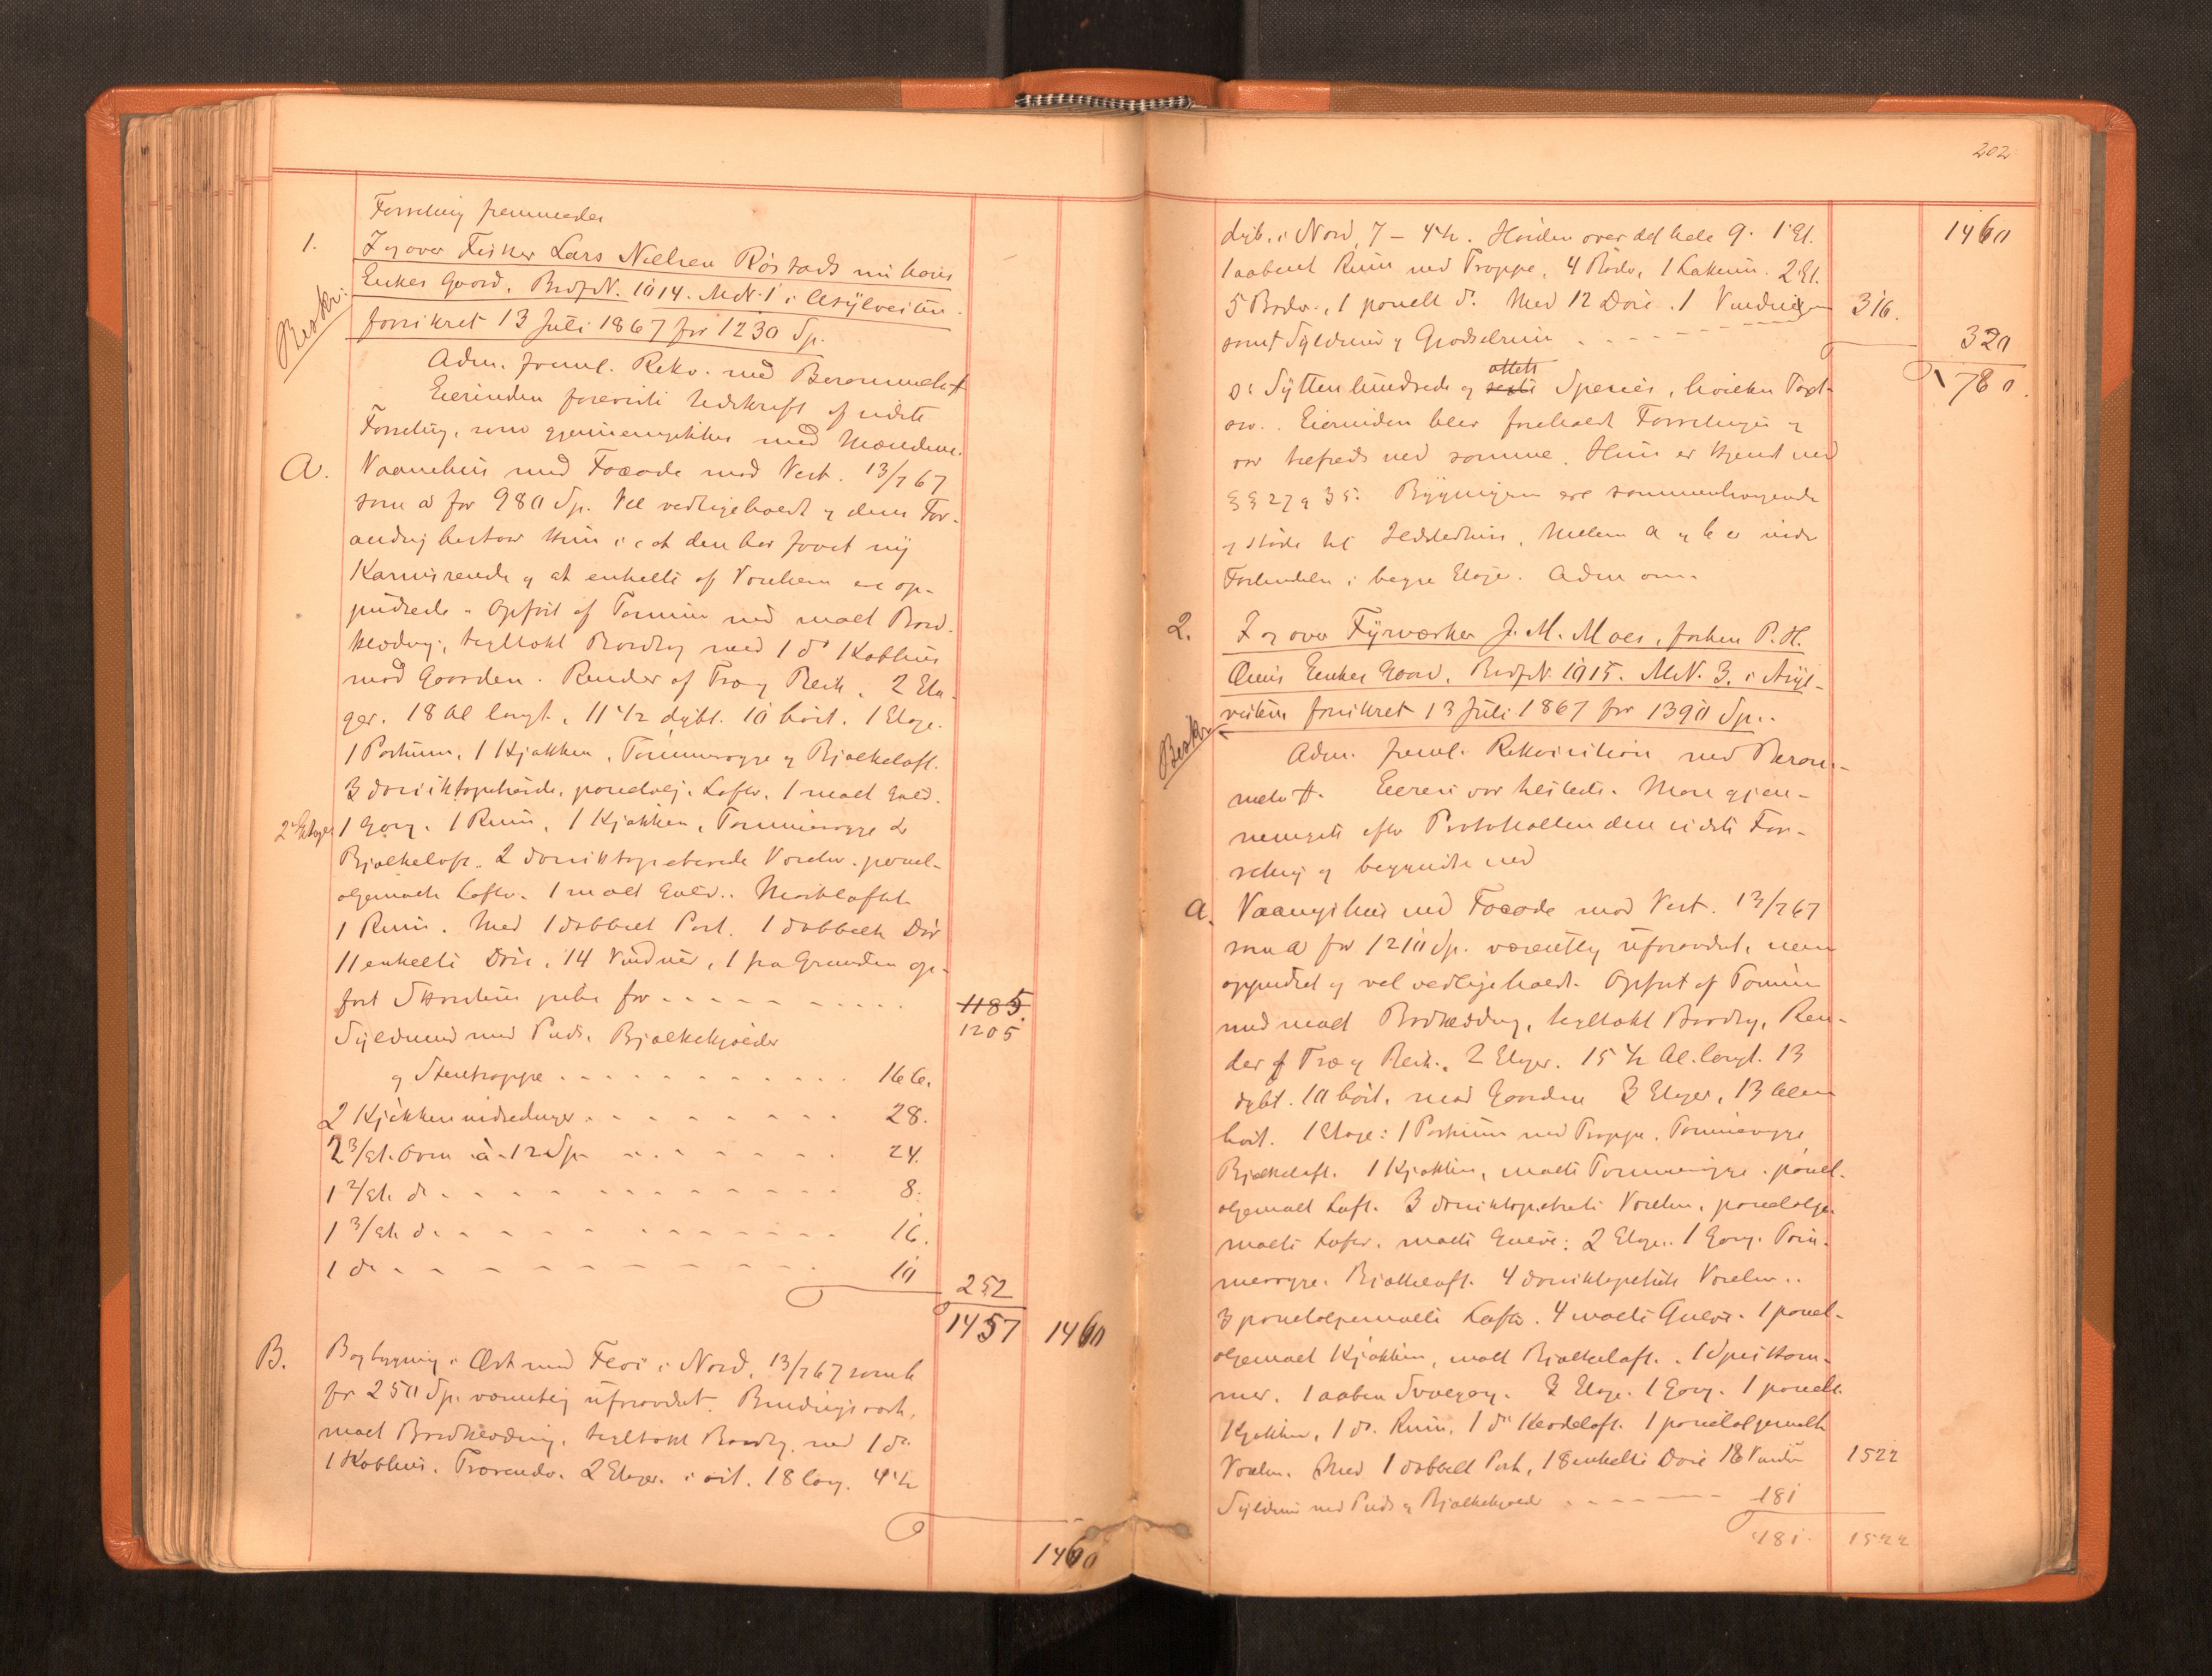 Forretning fremmedes
1. I og over Fisker Lars Nielsen Røstads nu hans
Enkes Gaard, Brdf N. 1014. M.N. 1 i Asylveiten
Beskr:
forsikret 13 Juli 1867 for 1230 Sp.
Adm. freml. Rekv. med Berammelse
Eierinden foreviste Udskrift af sidste
Forretning, som gjennemgikkes med Mændene.
A. Vaanehus med Facade mod Vest. 13/7 67
som a for 980 Sp. Vel vedligeholdt og dens For-
andring bestaar kun i at den har faaet ny
Karnisrende og at enkelte af Værelsern ere op-
pudsede. Opført af Tømmer med malt Bord-
klædning, tegltækt Bordtag med 1 do Kobhus
mod Gaarden. Render af Træ og Blik. 2 Eta-
ger. 18 Al langt, 11 1/2 dybt. 10 høit. 1 Etage.
1 Portrum, 1 Kjøkken, Tømmervægge og Bjælkeloft.
3 Værelser, panelolj. Lofter, 1 malt Gulv.
2 Etage 1 Gang. 1 Rum, 1 Kjøkken, Tømmervægge &
Bjælkeloft. 2 Værelser. panel-
oljemalte Lofter. 1 malt Gulv. Mørkloftet
1 Rum. Med 1 dobbelt Port. 1 dobbelt Dør
11 enkelte Døre, 14 Vinduer, 1 fra Grunden op-
ført Skorsten pibe for 1185.
1205
Syldmur med Puds, Bjælkekjælder
og Stentrappe 166.
2 Kjøkkenindredninger 28.
2 3/Et. Ovne à 12 Sp. 24.
1 2/Et. do 8.
1 3/Et. do 16.
1 do 10
252
1457 1460
B. Bagbygning i Øst med Fløi i Nord, 13/7 67 som b
for 250 Sp. væsentlig uforandret. Bindingsværk,
malt Bordklædning, tegltækt Bordtag med 1 do
1 Kobhus. Trærender. 2 Etager. i øst. 18 lang. 4 1/2
1460
202
dyb, i Nord, 7 - 4 1/2. Høiden over det hele 9. 1 Et. 1460
1 aabent Rum med Trappe, 4 Boder, 1 Lokum. 2 Et.
5 Boder, 1 panelt do. Med 12 Døre. 1 Vindu 316.
samt Syldmur og Grødselrum 320
o: Sytten hundrede og sexti otteti Species, hvilken Taxt 1780.
osv. Eierinden blev foreholdt Forretningen og
var tilfreds med samme. Hun er kjendt med
§§ 27 og 35. Bygningerne ere sammenhængende
og støde til Ildstedhus. Mellem A og b er indre
Forbindelse i begge Etager. Adm om.
2. I og over Fyrværker J. M. Moes, forhen P. H.
Enkes Gaard, Brdf N. 1015. M.N. 3. i Asyl-
veiten forsikret 13 Juli 1867 for 1390 Sp.
Beskr.
Adm. freml. Rekvisition med Beram-
melse. Eieren var tilstede. Man gjen-
nemgik efter Protokollen den sidste For-
retning og begyndte med
a. Vaaningshus med Facade mod Vest. 13/7 67
som a for 1210 Sp. væsentlig uforandret, men
oppudset og vel vedligeholdt. Opført af Tømmer
med malt Bordklædning, tegltækt Bordtag, Ren-
der af Træ og Blik. 2 Etager. 15 1/2 Al. langt. 13
dybt. 10 høit. mod Gaarden 3 Etager, 13 Alen
høit. 1 Etage: 1 Portrum med Trappe, Tømmervægge
Bjælkeloft. 1 Kjøkken, malte Tømmervægge, panel-
oljemalt Loft. 3 Værelser, panelolje-
malte Lofter, malte Gulve: 2 Etage. 1 Gang. Tøm-
mervægge. Bjælkeloft. 4 Værelser.
3 paneloljemalte Lofter. 4 malte Gulve. 1 panel-
oljemalt Kjøkken, malt Bjælkeloft. 1 Spiskam-
mer. 1 aaben Svalgang. 3 Etage. 1 Gang. 1 panelt
Kjøkken, 1 do. Rum, 1 do Klædeloft. 1 paneloljemalt
Værelse. Med 1 dobbelt Port, 18 enkelte Døre 18 Vinduer 1522
Syldmur med Puds og Bjælkekjælder 181
181. 1522